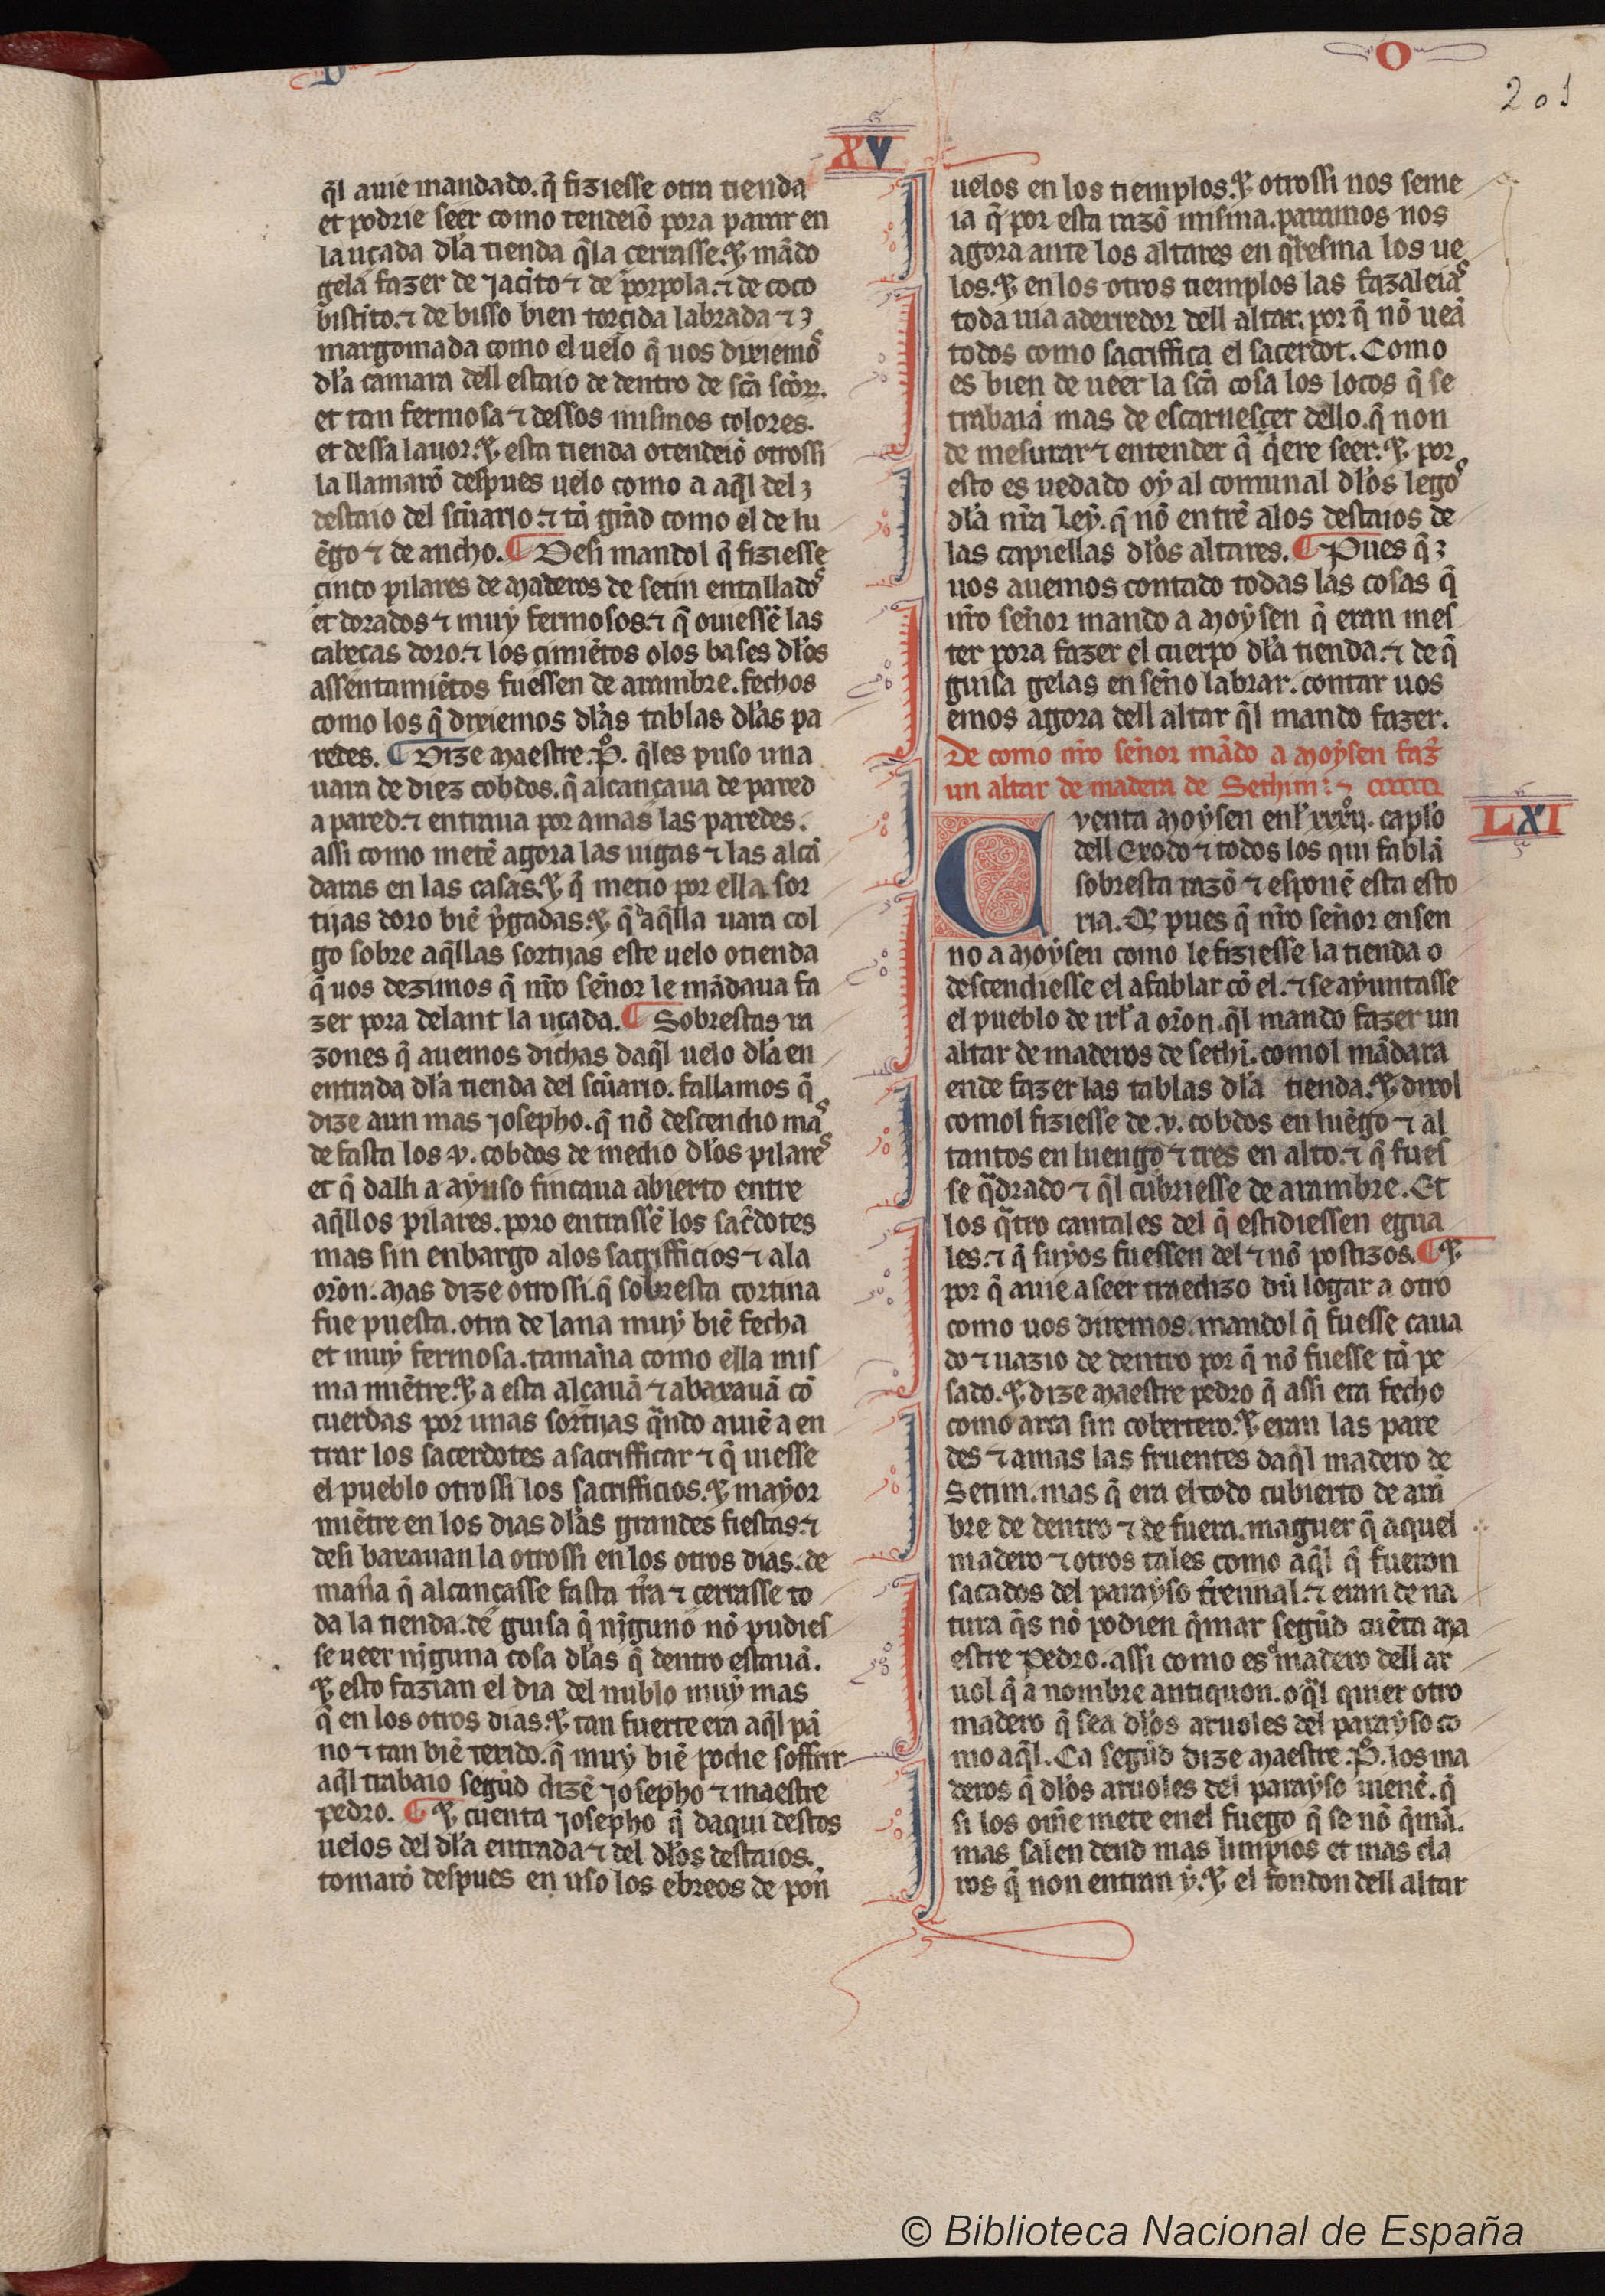 O
201
XV
q̃l auie mandado. q̃ fiziesse otra tienda
et podrie seer como tendeiõ pora parar en
la uçada dl'a tienda q̃la cerrasse. ⁊ mãdo
gela fazer de jacito ⁊ de porpola. ⁊ de coco
bistito. ⁊ de bisso bien torçida labrada ⁊
margomada como el uelo q̃ uos dixiemos
dl'a camara dell estaio de dentro de sc̃a sc̃or̃.
et tan fermosa ⁊ dessos mismos colores.
et dessa lauor. ⁊ esta tienda o tendeiõ otrossi
la llamarõ despues uelo como a aq̃l del
destaio del sc̃uario. ⁊ tã grãd como el de lu
ẽgo ⁊ de ancho. ¶ Desi mandol q̃ fiziesse
cinco pilares de maderos de setin entallados
et dorados ⁊ muy fermosos. ⁊ q̃ ouiessẽ las
cabeças doro. ⁊ los cimiẽtos o los bases dl'os
assentamiẽtos fuessen de arambre. fechos
como los q̃ dixiemos dl'as tablas dl'as pa
redes. ¶ Dize maestre .P̊. q̃les puso una
uara de diez cobdos. q̃ alcançaua de pared
a pared. ⁊ entraua por amas las paredes.
assi como metẽ agora las uigas ⁊ las alcã
daras en las casas. ⁊ q̃ metio por ella sor
tijas doro biẽ p̃gadas. ⁊ q̃ d aq̃lla uara col
go sobre aq̃llas sortijas este uelo o tienda
q̃ uos dezimos q̃ nr̃o señor le mãdaua fa
zer pora delant la uçada. ¶ Sobrestas ra
zones q̃ auemos dichas daq̃l uelo dl'a en
entrada dl'a tienda del sc̃uario. fallamos q̃
dize aun mas josepho. q̃ nõ descendio mas
de fasta los .v. cobdos de medio dl'os pilares
et q̃ dalli a ayuso fincaua abierto entre
aq̃llos pilares. poro entrassẽ los sac̃dotes
mas sin enbargo a los sacrifficios ⁊ a la
or̃on. Mas dize otrossi. q̃ sobresta cortina
fue puesta. otra de lana muy biẽ fecha
et muy fermosa. tamaña como ella mis
ma miẽtre. ⁊ a esta alçauã ⁊ abaxauã cõ
cuerdas por unas sortijas q̃ndo auiẽ a en
trar los sacerdotes a sacrifficar ⁊ q̃ uiesse
el pueblo otrossi los sacrifficios. ⁊ mayor
miẽtre en los dias dl'as grandes fiestas. ⁊
desi baxauan la otrossi en los otros dias. de
mañra q̃ alcançasse fasta tr̃a ⁊ cerrasse to
da la tienda. de guisa q̃ ninguno nõ pudies
se ueer ninguna cosa dl'as q̃ dentro estauã.
⁊ esto fazian el dia del nublo muy mas
q̃ en los otros dias. ⁊ tan fuerte era aq̃l pã
no ⁊ tan biẽ texido. q̃ muy bien podie soffrir
aq̃l trabaio segũd dizẽ josepho ⁊ maestre
pedro. ¶ ⁊ cuenta josepho q̃ daqui destos
uelos del dl'a entrada ⁊ del dl'os destaios.
tomarõ despues en uso los ebreos de pon̄
uelos en los tiemplos. ⁊ otrossi nos seme
ia q̃ por esta razõ misma. paramos nos
agora ante los altares en q̃resma los ue
los. ⁊ en los otros tiemplos las fazaleias
toda uia aderredor dell altar. por q̃ nõ ueã
todos como sacriffica el sacerdot. Como
es bien de ueer la sc̃a cosa los locos q̃ se
trabaiã mas de escarnesçer dello. q̃ non
de mesurar ⁊ entender q̃ q̃ere seer. ⁊ por
esto es uedado oy al comunal dl'os legos
dl'a nr̃a Ley. q̃ nõ entrẽ a los destaios de
las capiellas dl'os altares. ¶ Pues q̃
uos auemos contado todas las cosas q̃
nr̃o señor mando a moysen q̃ eran mes
ter pora fazer el cuerpo dl'a tienda. ⁊ de q̃
guisa gelas enseño labrar. contar uos
emos agora dell altar q̃l mando fazer.
De como nr̃o señor mãdo a moysen faz̃
un altar de madera de Sethim: ⁊
LXI
Cventa moysen enl' xxxvij. caplo
dell Exodo ⁊ todos los qui fablã
sobresta razõ ⁊ esponẽ esta esto
ria. Q̃ pues q̃ nr̃o señor ensen
no a moysen como le fiziesse la tienda o
descendiesse el a fablar cõ el. ⁊ se ayuntasse
el pueblo de irl' a or̃on. q̃l mando fazer un
altar de maderos de sethĩ. comol mãdara
ende fazer las tablas dl'a tienda. ⁊ dixol
comol fiziesse de .v. cobdos en luẽgo ⁊ al
tantos en luengo ⁊ tres en alto. ⁊ q̃ fues
se q̃drado ⁊ q̃l cubriesse de arambre. Et
los q̃tro cantales del q̃ estidiessen egua
les. ⁊ q̃ suyos fuessen del ⁊ nõ postizos. ¶ ⁊
por q̃ auie a seer traedizo dũ logar a otro
como uos diremos. mandol q̃ fuesse caua
do ⁊ uazio de dentro por q̃ nõ fuesse tã pe
sado. ⁊ dize maestre pedro q̃ assi era fecho
como arca sin cobertero. ⁊ eran las pare
des ⁊ amas las fruentes daq̃l madero de
Setim. mas q̃ era el todo cubierto de arã
bre de dentro ⁊ de fuera. maguer q̃ aquel
madero ⁊ otros tales como aq̃l q̃ fueron
sacados del parayso t̃rennal. ⁊ eran de na
tura q̃s nõ podien q̃mar segũd cuẽta ma
estre Pedro. assi como es el madero dell ar
uol q̃ a nombre antiquon. o q̃l quier otro
madero q̃ sea dl'os aruoles del parayso co
mo aq̃l. Ca segũd dize maestre .P̊. los ma
deros q̃ dl'os aruoles del parayso uienẽ. q̃
si los om̃e mete en el fuego q̃ se nõ q̃mã.
mas salen dend mas limpios et mas cla
ros q̃ non entran y. ⁊ el fondon dell altar
© Biblioteca Nacional de España